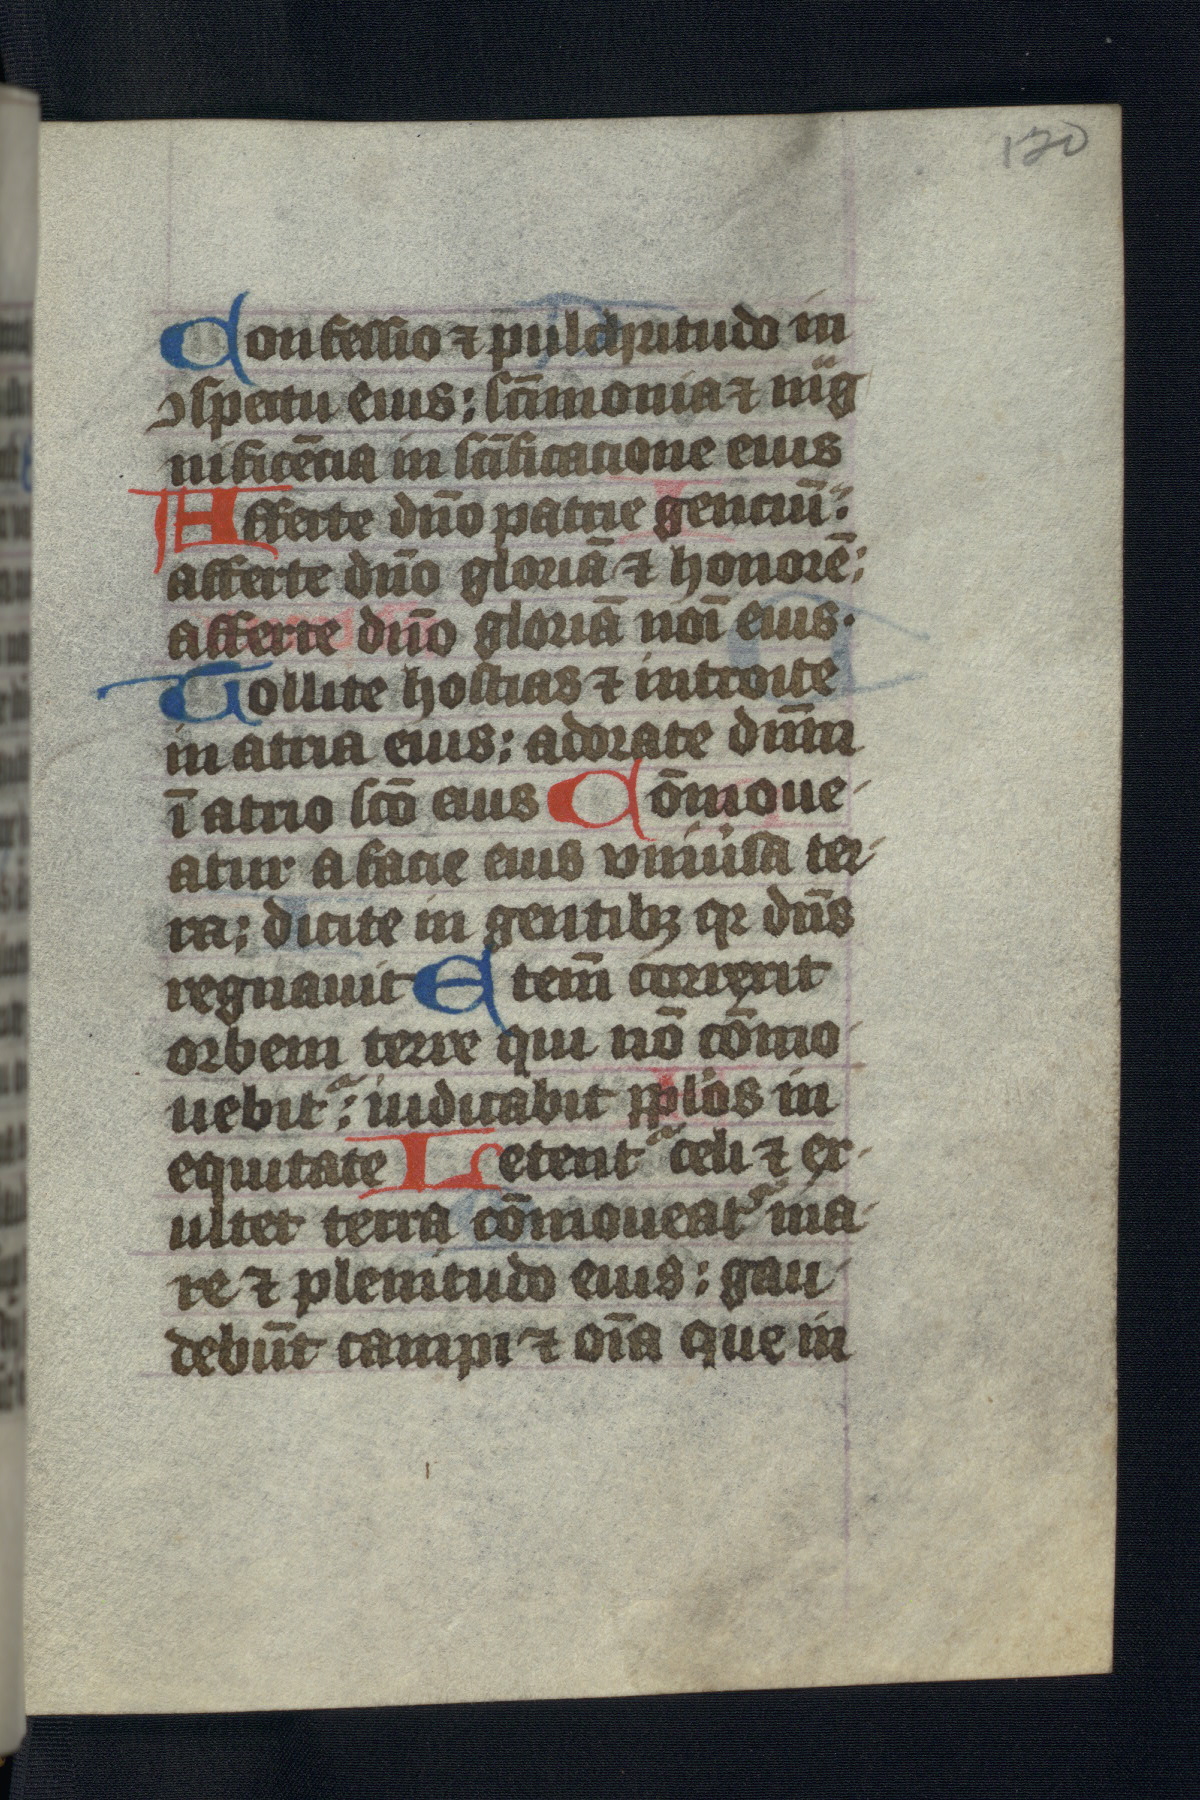 120
Confessio ⁊ pulchritudo in
ↄspectu eius; scīmonia ⁊ mag
nificēcia in scīficacione eius
Afferte dn̄o patrie genciū:
afferte dn̄o gloriā ⁊ honorē;
afferte dn̄o gloriā noī eius.
Tollite hostias ⁊ introite
in atria eius; adorate dn̄m
ī atrio scō eius Cōmoue-
atur a facie eius vniuͥsa ter-
ra; dicite in gentibꝫ qꝛ dn̄s
regnauit Etem̄ correxit
orbem terre qui nō cōmo-
uebit᷑; iudicabit pplōs in
equitate Letent᷑ celi ⁊ ex-
ultet terra cōmoueat᷑ ma-
re ⁊ plenitudo eius: gau-
debūt campi ⁊ oīa que in